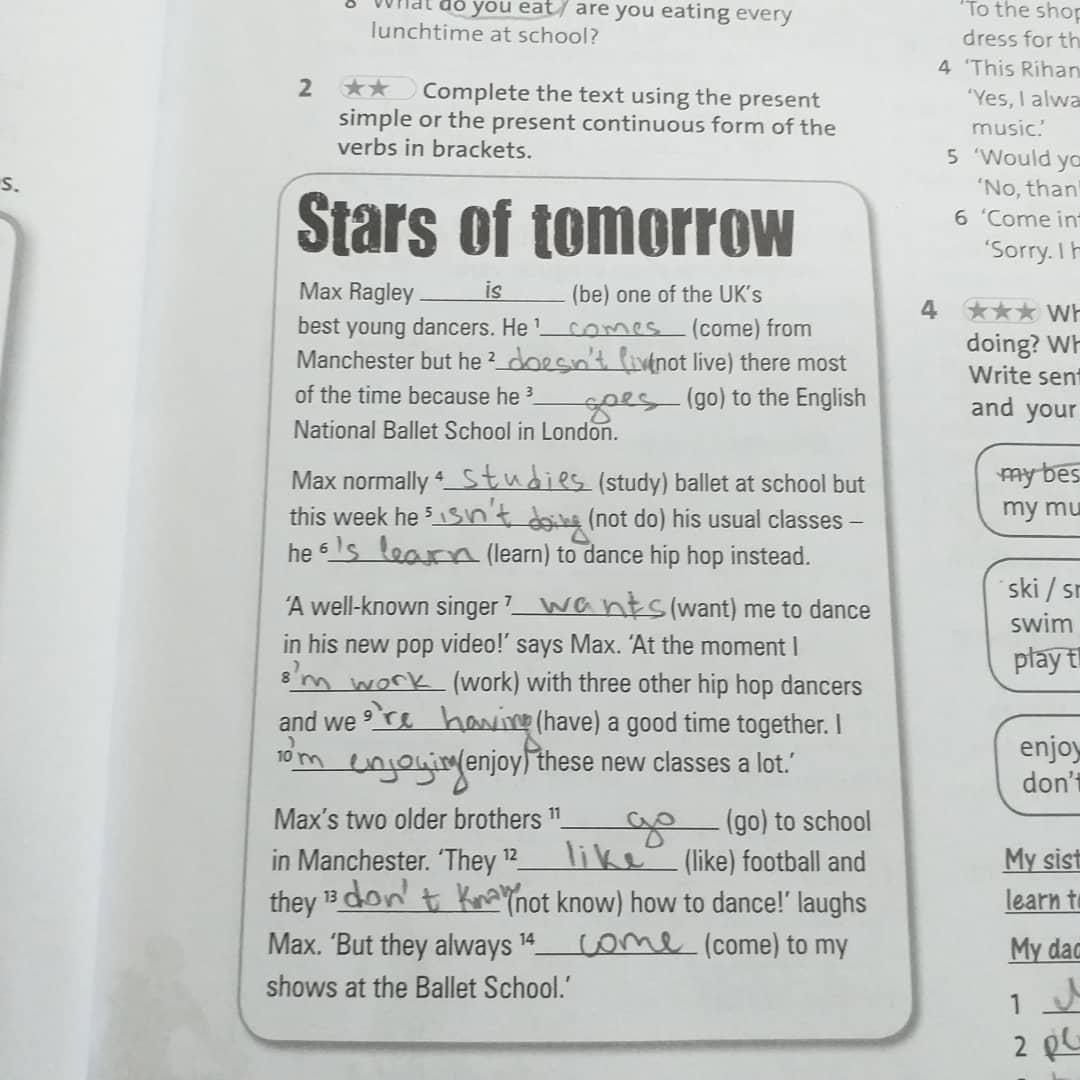 What do you eat / are you eating every
lunchtime at school?
2 ★★ Complete the text using the present
simple or the present continuous form of the
verbs in brackets.
Stars of tomorrow
Max Ragley is (be) one of the UK's
best young dancers. He ¹ comes (come) from
Manchester but he ² doesn't live (not live) there most
of the time because he ³ goes (go) to the English
National Ballet School in London.
Max normally ⁴ studies (study) ballet at school but
this week he ⁵ isn't doing (not do) his usual classes –
he ⁶ 's learn (learn) to dance hip hop instead.
'A well-known singer ⁷ wants (want) me to dance
in his new pop video!' says Max. 'At the moment I
⁸ 'm work (work) with three other hip hop dancers
and we ⁹ 're having (have) a good time together. I
¹⁰ 'm enjoying (enjoy) these new classes a lot.'
Max's two older brothers ¹¹ go (go) to school
in Manchester. 'They ¹² like (like) football and
they ¹³ don't know (not know) how to dance!' laughs
Max. 'But they always ¹⁴ come (come) to my
shows at the Ballet School.'
s.
'To the
dress for
4 'This
'Yes, I
music.'
5 'Would
'No,
6 'Come
'Sorry. I
4 ★★★
doing?
Write
and your
my
my
ski /
swim
play
enjoy
don't
My
learn
My
1
2